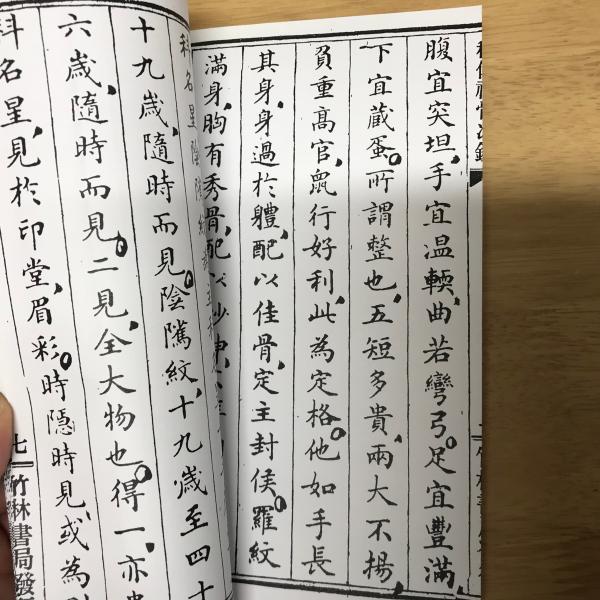 腹宜突坦，手宜温輭，曲若彎弓。足宜豐滿，
下宜藏蛋。所謂整也，五短多貴，兩大不揚，
負重高官，鼠行好利，此為定格。他如手長
其身，身過於體，配以佳骨，定主封侯。羅紋
滿身，胸有秀骨，配以妙神，
十九歲，隨時而見。陰隲紋，十九歲至四十
六歲，隨時而見。二見全大物也。得一，亦
科名星，見於印堂，眉彩。時隱時見，或為
七
竹林書局發